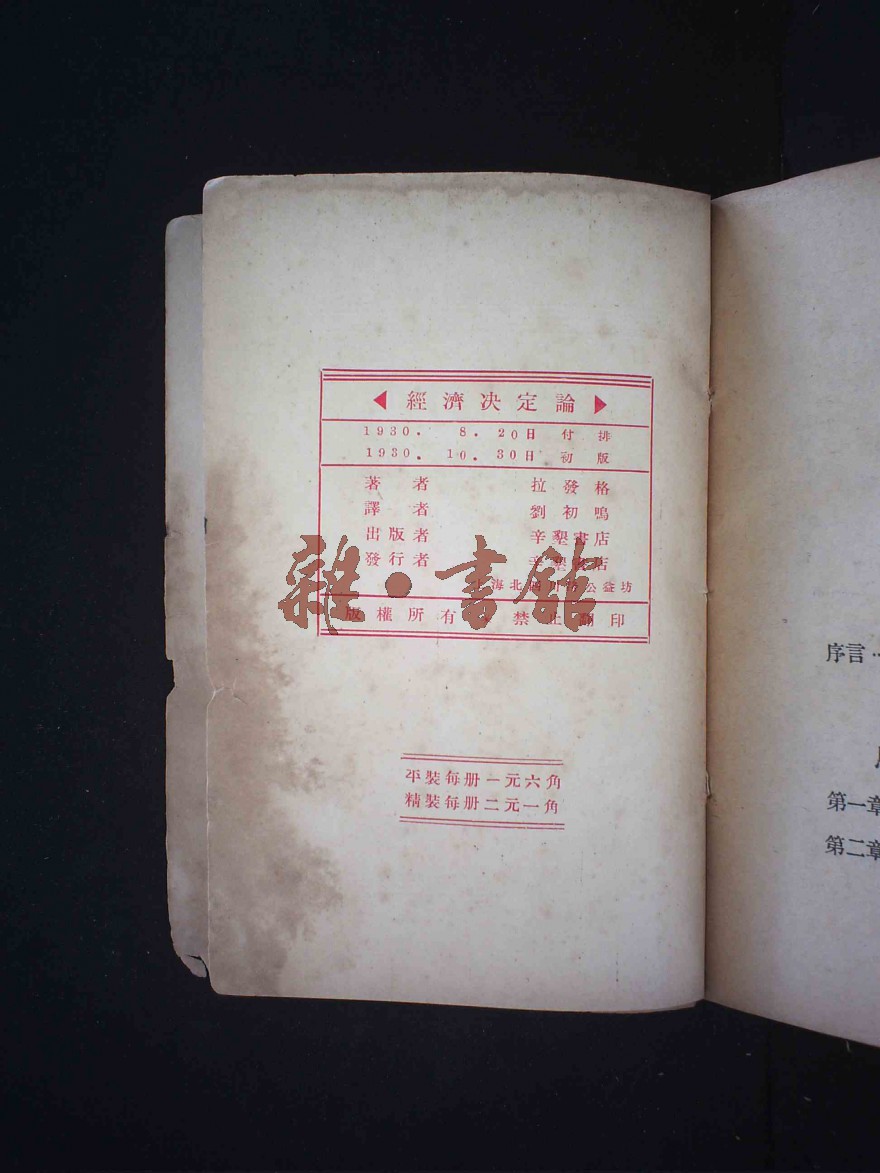 經濟决定論
1930. 8. 20日 付排
1930. 10. 30日 初版
著者 拉發格
譯者 劉初鳴
出版者 辛墾書店
發行者 辛墾書店
海北四川路公益坊
版權所有 禁止翻印
雜·書館
平裝每册一元六角
精裝每册二元一角
序言
第一章
第二章